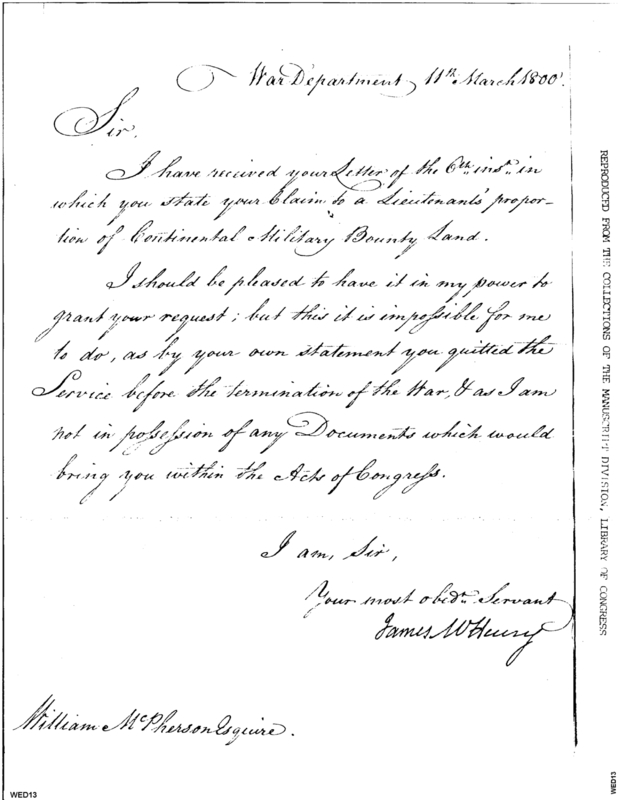 War Department 11th March 1800.
Sir.
I have received your Letter of the 6th inst. in
which you state your Claim to a Lieutenants' propor-
tion of Continental Military Bounty Land.
I should be pleased to have it in my power to
grant your request; but this it is impossible for me
to do, as by your own statement you quitted the
Service before the termination of the War, & as I am
not in possession of any Documents which would
bring you within the Acts of Congress.
I am, Sir,
Your most obedt. Servant
James McHenry
William McPherson Esquire.
REPRODUCED FROM THE COLLECTIONS OF THE MANUSCRIPT DIVISION, LIBRARY OF CONGRESS
WED13
WED13